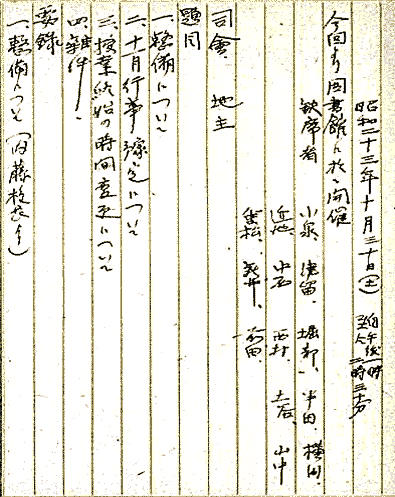 昭和二十三年十月三十日(土) 自午後一時 至〃二時三十分
今回より図書館に於て開催
欠席者 小泉、津留、堀部、半田、横田、
近池、中西、西村、土居、山中
重松、荒井、前田、
司会、地主
題目
一、整備について
二、十一月行事予定について
三、授業終始の時間変更について
四、雑件、
要録
一、整備について(内藤校長より)